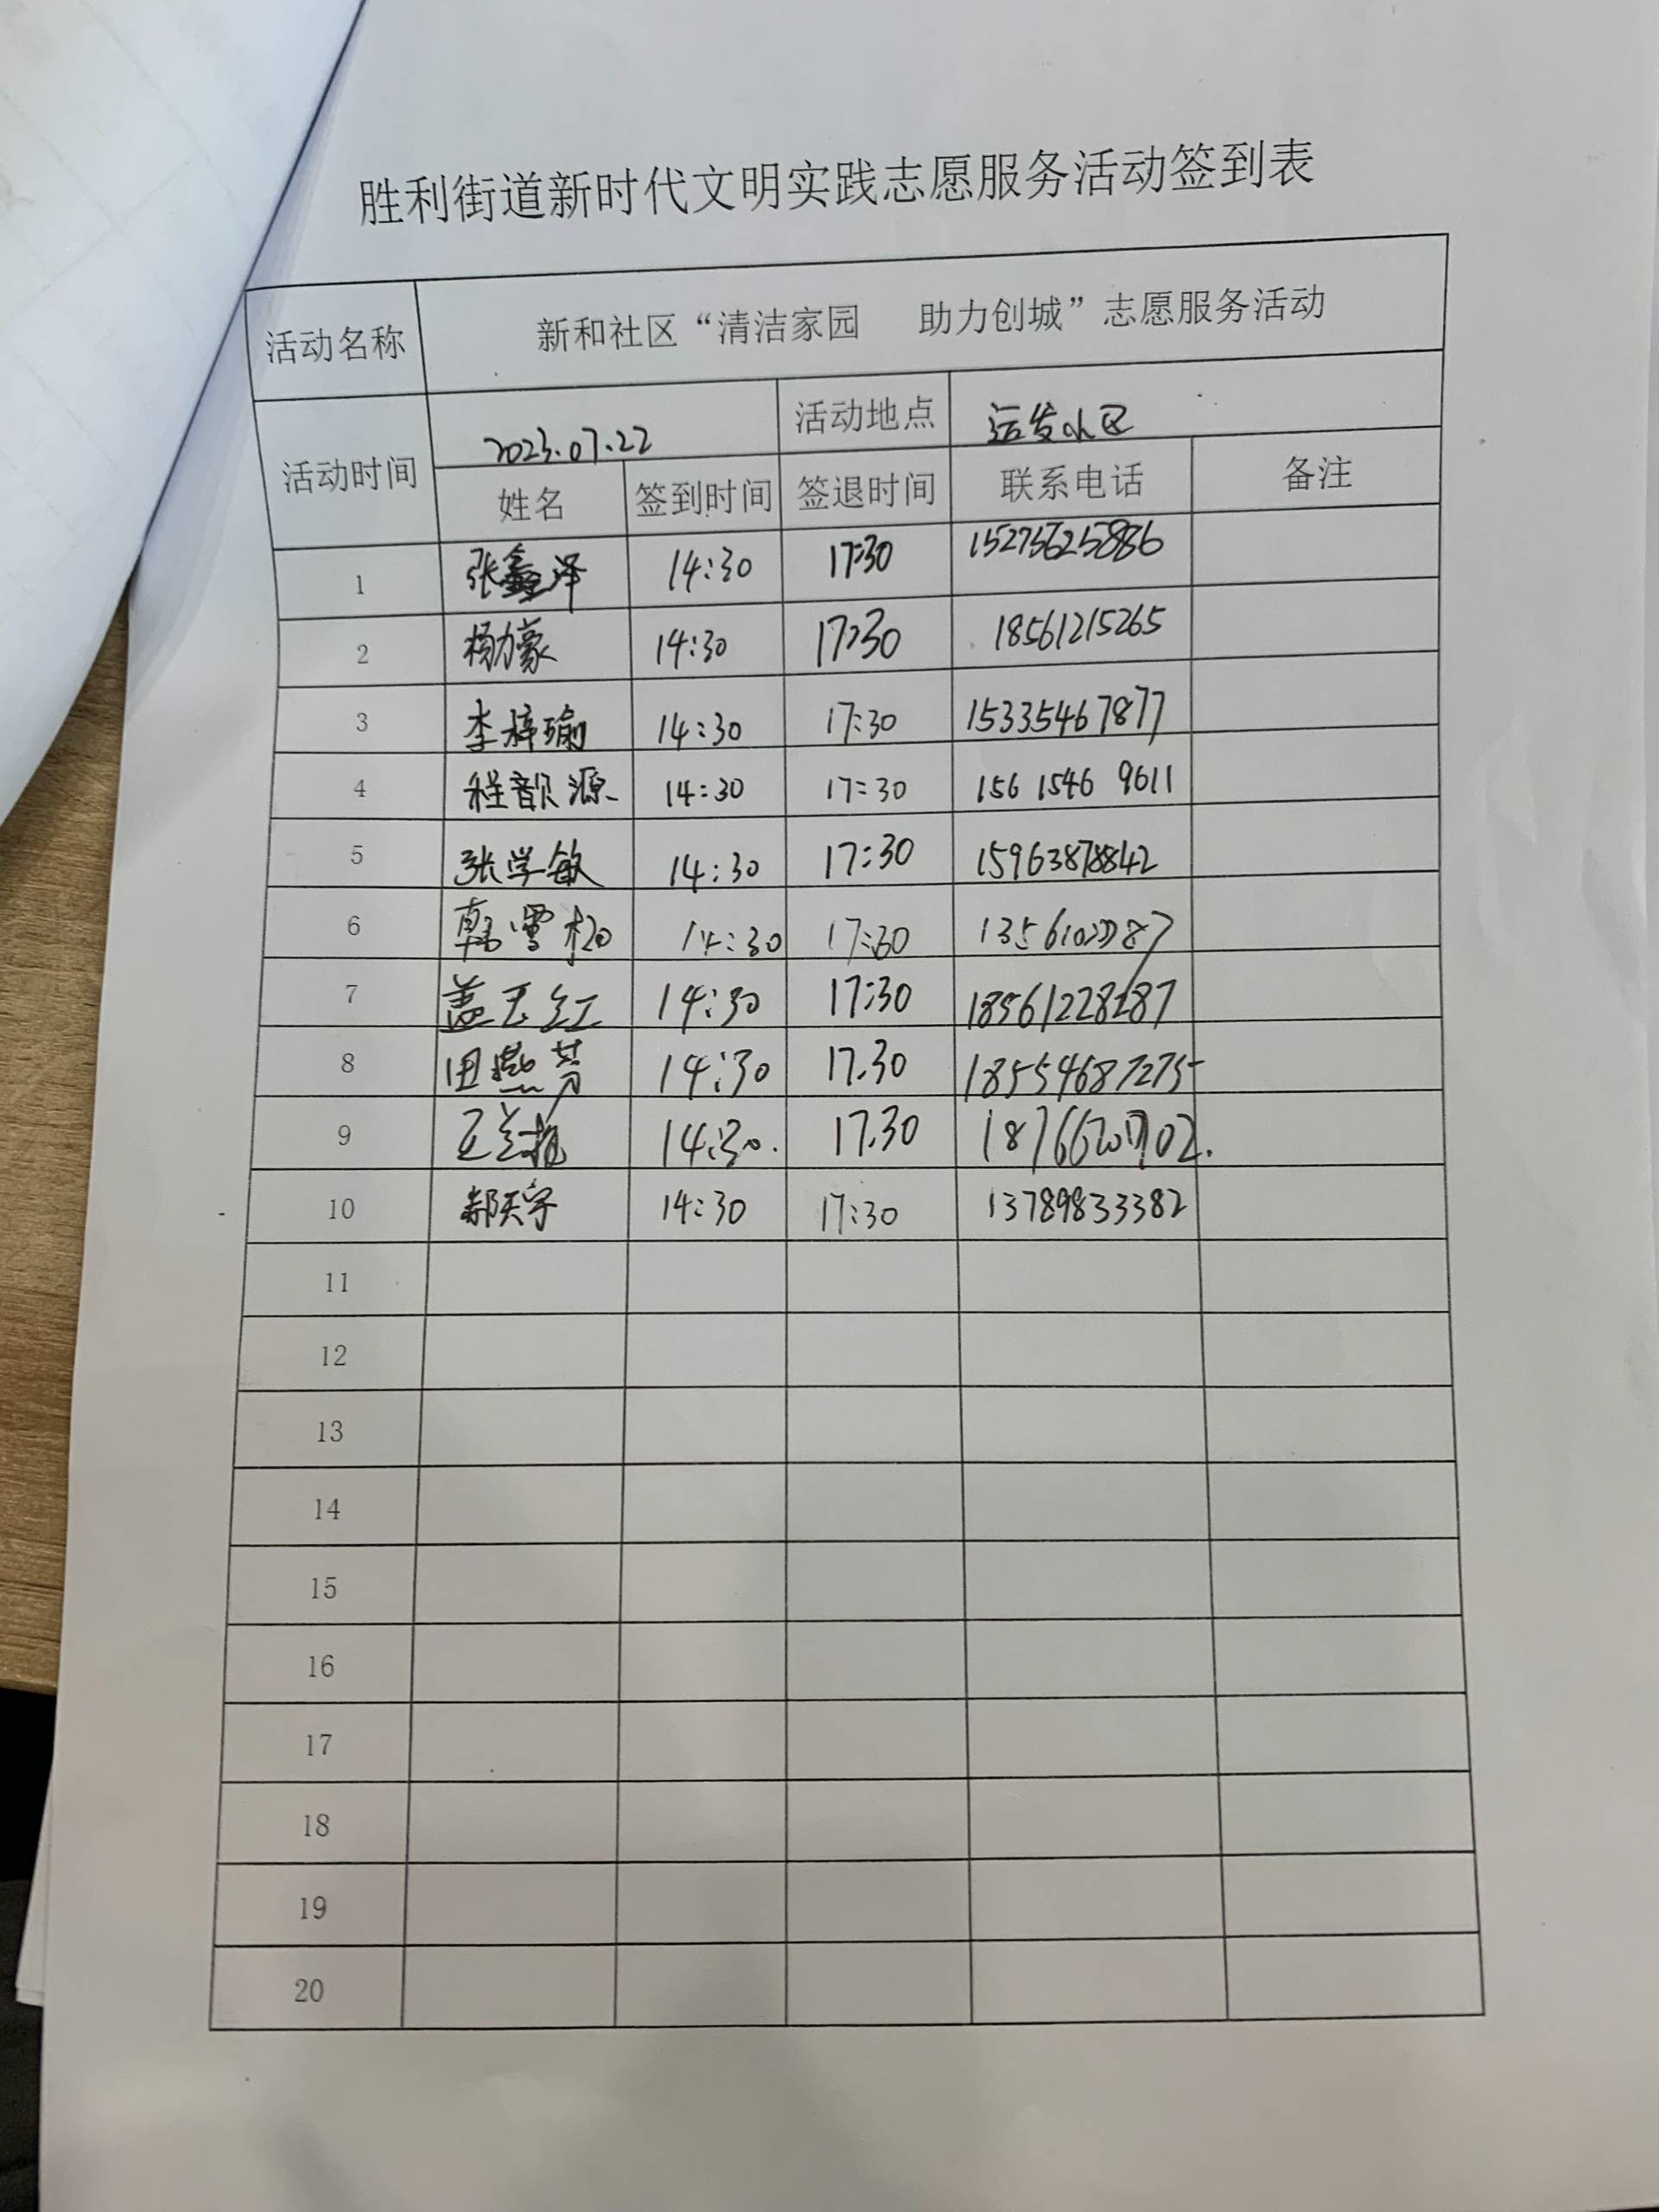 胜利街道新时代文明实践志愿服务活动签到表
活动名称 新和社区“清洁家园 助力创城”志愿服务活动
活动时间 2023.07.22 活动地点 运发小区
姓名 签到时间 签退时间 联系电话 备注
1 张鑫泽 14:30 17:30
2 杨力豪 14:30 17:30 18561215265
3 李梓瑜 14:30 17:30 15335467877
4 程韵源 14:30 17:30 156 1546 9611
5 张学敏 14:30 17:30 15963878842
6 韩雪松 14:30 17:30
7 盖玉红 14:30 17:30 18561228287
8 田燕芳 14:30 17.30 18554687275
9 14:30. 17.30
10 郝天宇 14:30 17:30 13789833382
11
12
13
14
15
16
17
18
19
20